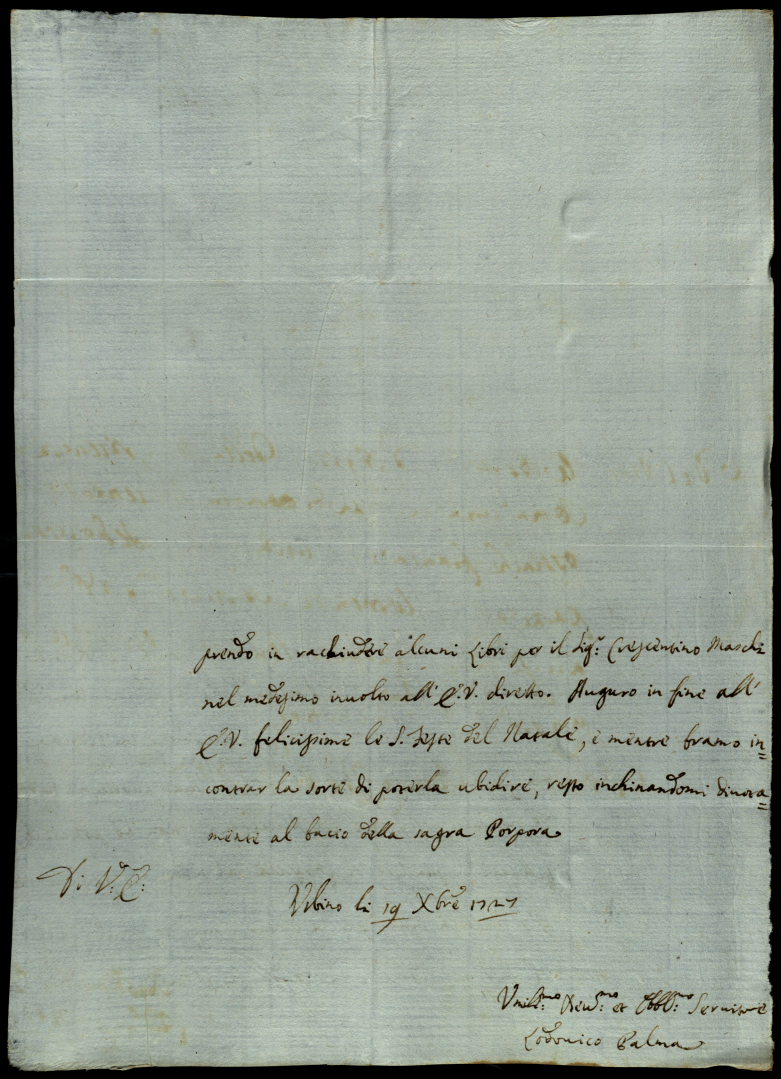 prendo in rachiudere alcuni Libri per il Sig.r Crescentino Maschi
nel medesimo inuolto all' E.V. diretto. Auguro in fine all'
E.V. felicissime le S. feste del Natale, e mentre bramo in=
contrar la sorte di poterla ubidire, resto inchinandomi diuota=
mente al bacio della sagra Porpora
Di V. E.
Urbino li 19 Xbre 1727
Umil.mo Deuo.mo et Obbl.mo Seruitore
Lodouico Palma